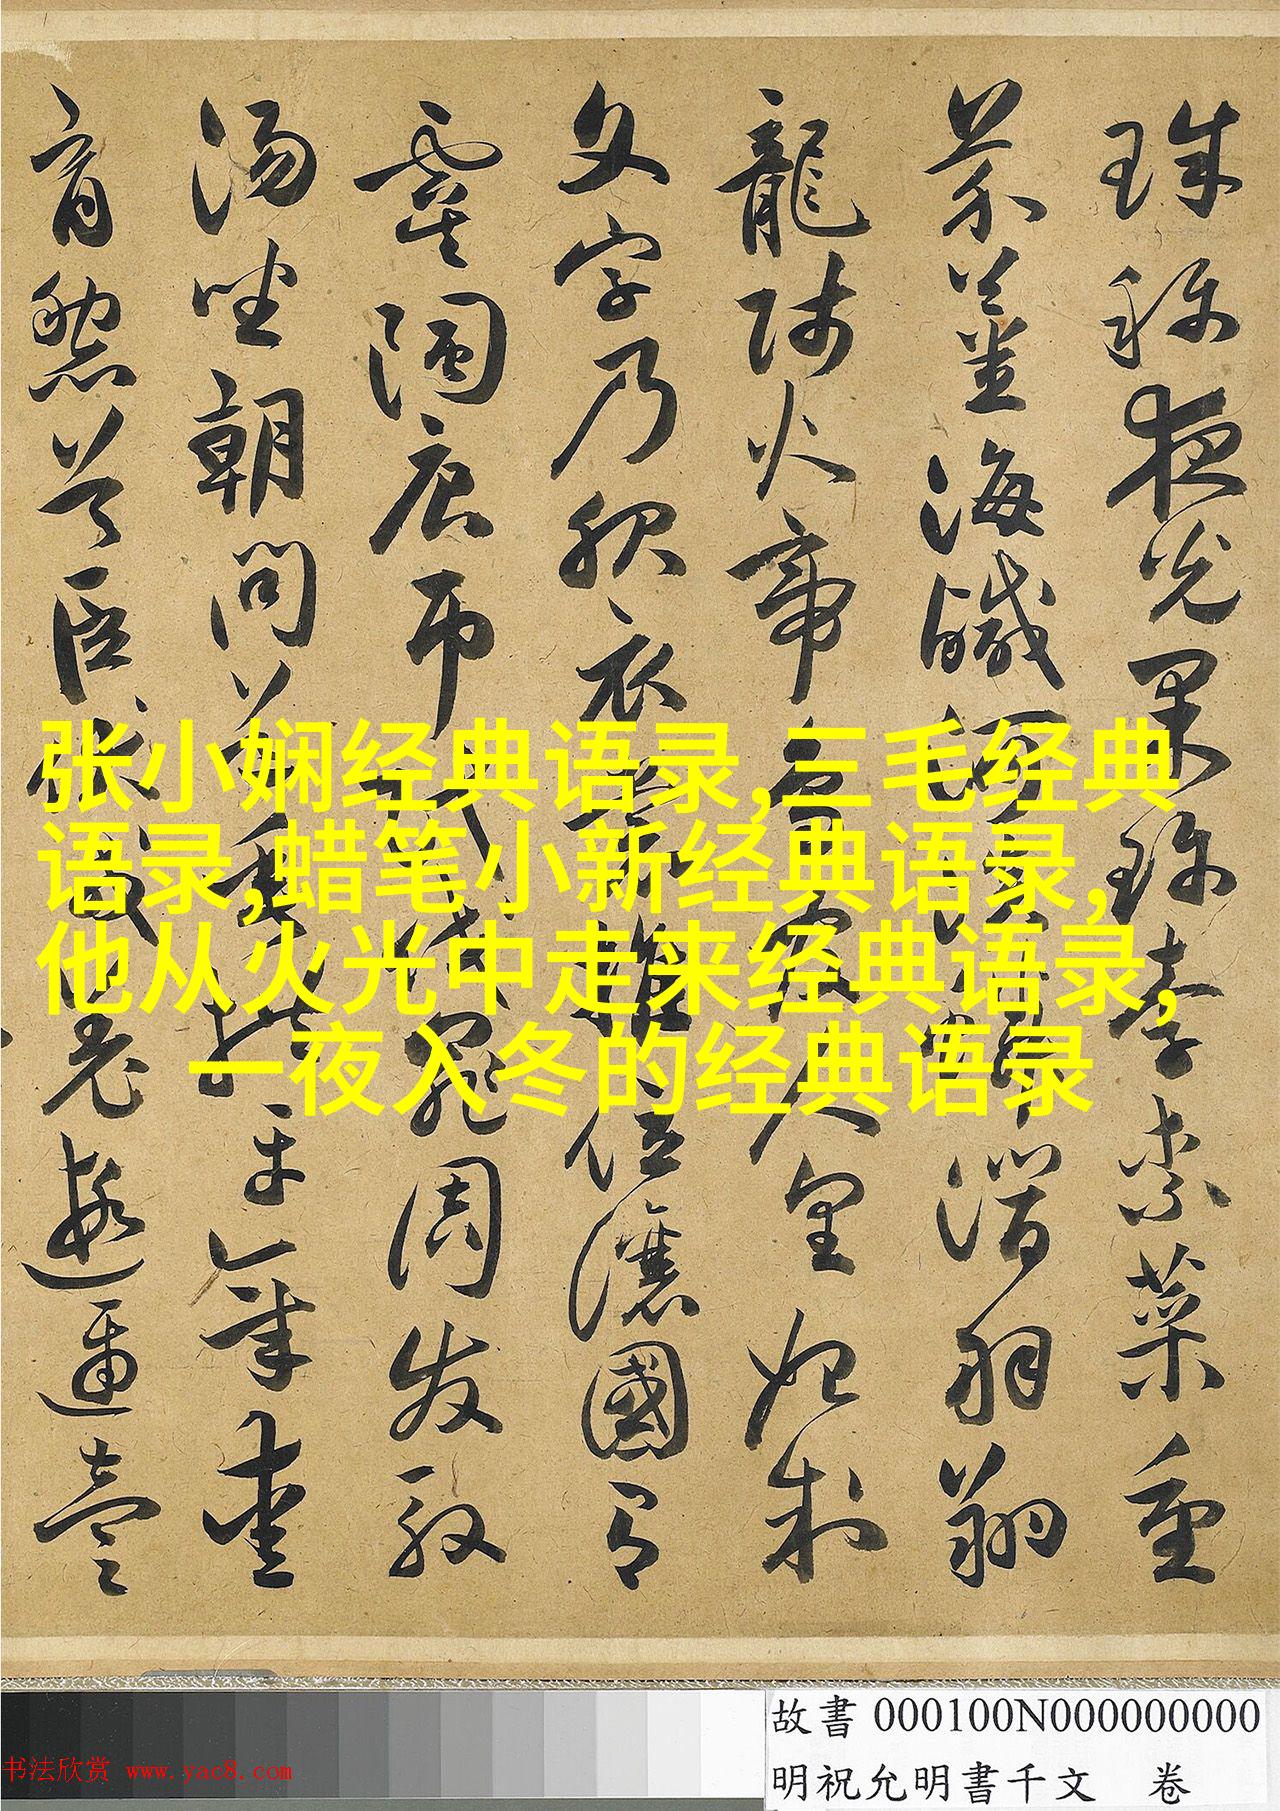 珠称夜光果珎李柰菜重
芥薑海鹹河淡鱗潛羽翔
龍師火帝鳥官人皇始制
文字乃服衣裳推位讓國有
虞陶唐弔民伐罪周发殷
湯坐朝問道垂拱平章愛
育黎首臣伏戎羌遐邇壹
张小娴经典语录,三毛经典
语录,蜡笔小新经典语录,
他从火光中走来经典语录,
一夜入冬的经典语录
故書 000100N000000000
明祝允明書千文 卷
书法欣赏 www.yac8.com